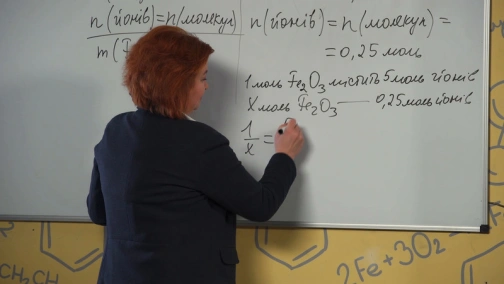 n(йонів)=n(молекул)
m(F
n(йонів) = n(молекул) =
= 0,25 моль
1 моль Fe₂O₃ містить 5 моль йонів
X моль Fe₂O₃ —— 0,25 моль йонів
1/x =
2Fe+3O₂
CH₂CH